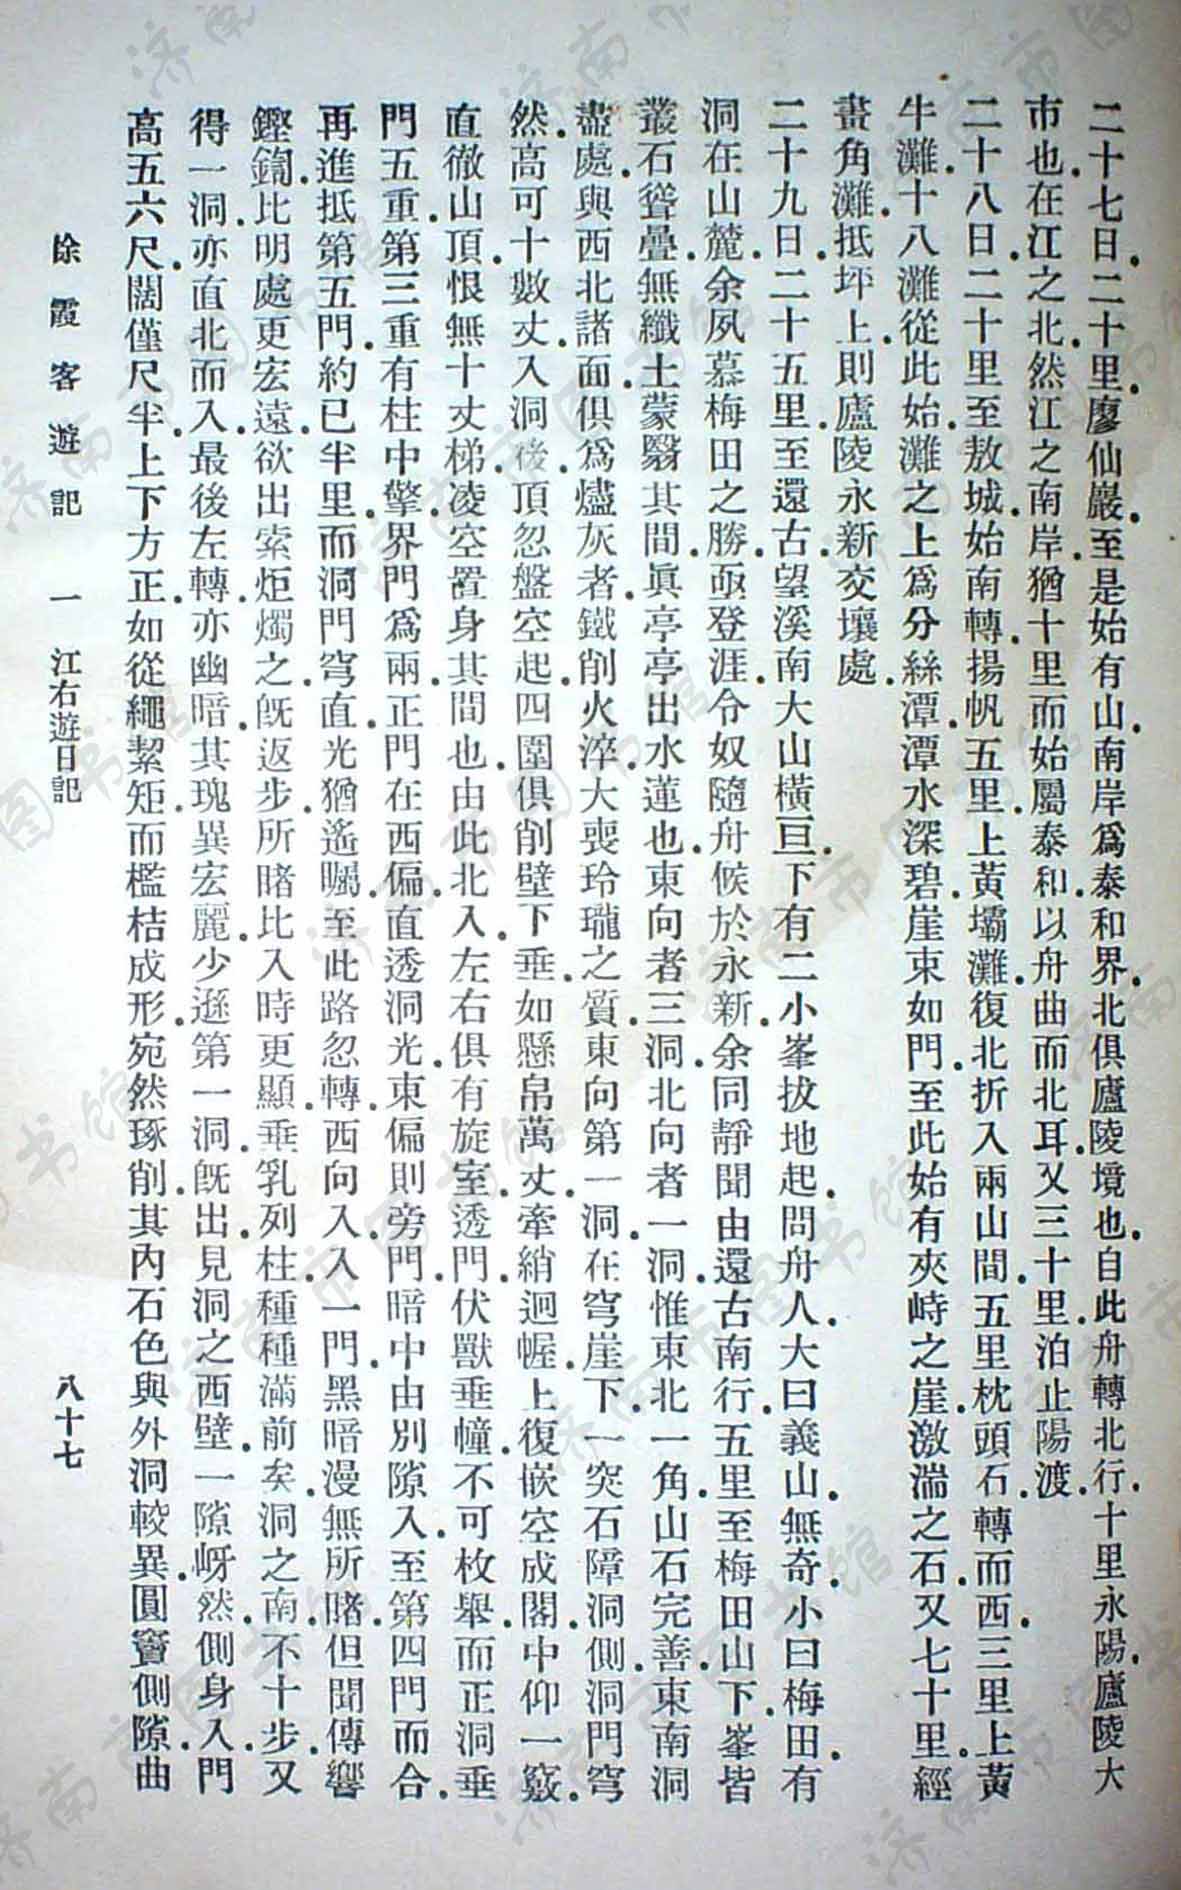 二十七日二十里廖仙巖至是始有山南岸爲泰和界北俱廬陵境也自此舟轉北行十里永陽廬陵大
市也在江之北然江之南岸猶十里而始屬泰和以舟曲而北耳又三十里泊止陽渡
二十八日二十里至敖城始南轉揚帆五里上黃壩灘復北折入兩山間五里枕頭石轉而西三里上黃
牛灘十八灘從此始灘之上爲分絲潭潭水深碧崖束如門至此始有夾峙之崖激湍之石又七十里經
畫角灘抵坪上則廬陵永新交壤處
二十九日二十五里至還古望溪南大山橫亘下有二小峯拔地起問舟人大曰義山無奇小曰梅田有
洞在山麓余夙慕梅田之勝亟登涯令奴隨舟候於永新余同靜聞由還古南行五里至梅田山下峯皆
叢石聳疊無纖土蒙翳其間眞亭亭出水蓮也東向者三洞北向者一洞惟東北一角山石完善東南洞
盡處與西北諸面俱爲燼灰者鐵削火淬大喪玲瓏之質東向第一洞在穹崖下一突石障洞側洞門穹
然高可十數丈入洞後頂忽盤空起四圍俱削壁下垂如懸帛萬丈牽綃迴幄上復嵌空成閣中仰一竅
直徹山頂恨無十丈梯凌空置身其間也由此北入左右俱有旋室透門伏獸垂幢不可枚舉而正洞垂
門五重第三重有柱中擎界門爲兩正門在西偏直透洞光東偏則旁門暗中由別隙入至第四門而合
再進抵第五門約已半里而洞門穹直光猶遙矚至此路忽轉西向入入一門黑暗漫無所睹但聞傳響
鏗鎉比明處更宏遠欲出索炬燭之旣返步所睹比入時更顯垂乳列柱種種滿前矣洞之南不十步又
得一洞亦直北而入最後左轉亦幽暗其瑰異宏麗少遜第一洞旣出見洞之西壁一隙岈然側身入門
高五六尺闊僅尺半上下方正如從繩絜矩而檻桔成形宛然琢削其內石色與外洞較異圓竇側隙曲
徐霞客遊記 一 江右遊日記 八十七
濟南市图书馆